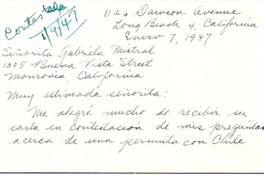 Contestada
1/9/47
1126 Dawson Avenue
Long Beach 4, California
Enero 7, 1947
Señorita Gabriela Mistral
1305 Buena Vista Street
Monrovia, California
Muy estimada señorita:
Me alegró mucho de recibir su
carta en contestación de mis preguntas
acerca de una permuta con Chile